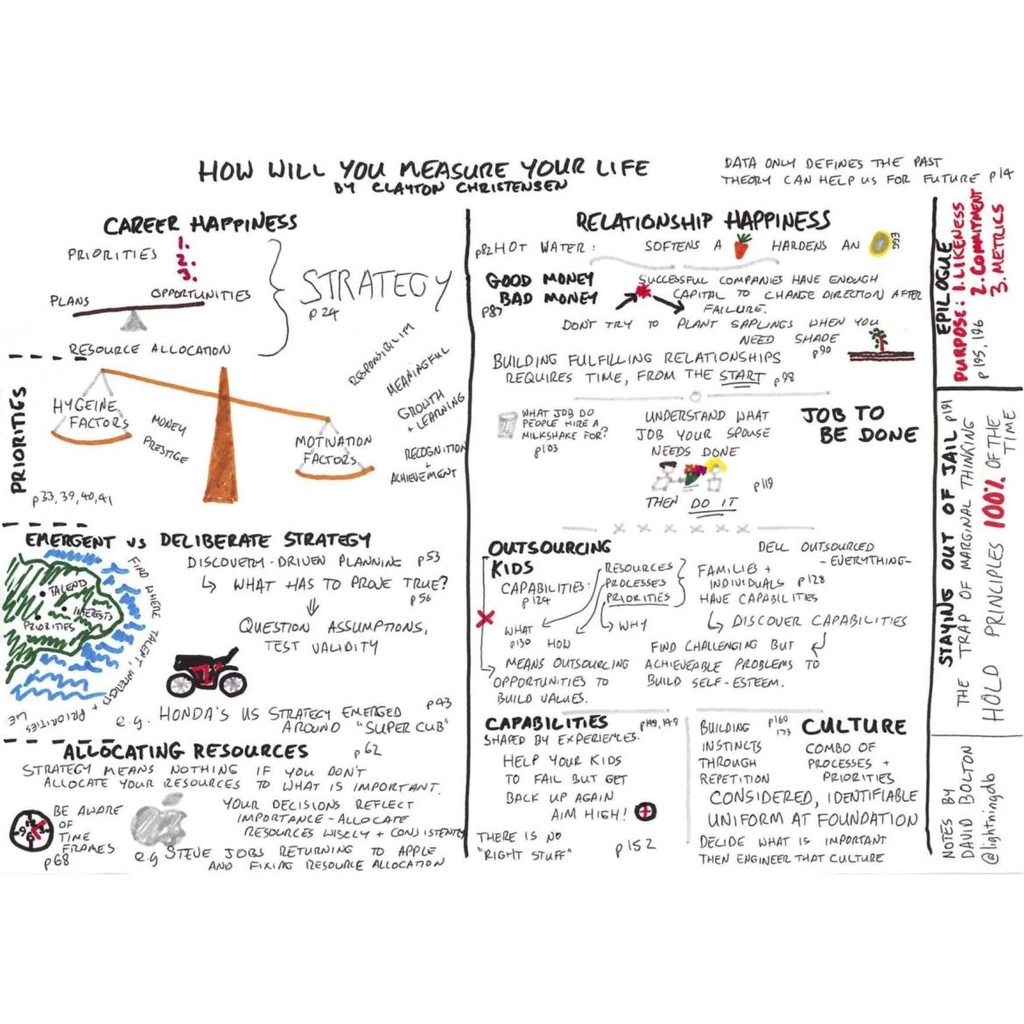 HOW WILL YOU MEASURE YOUR LIFE
BY CLAYTON CHRISTENSEN
DATA ONLY DEFINES THE PAST
THEORY CAN HELP US FOR FUTURE p14
CAREER HAPPINESS
PRIORITIES
1.
2.
3.
PLANS
OPPORTUNITIES
RESOURCE ALLOCATION
STRATEGY
p24
PRIORITIES
HYGEINE
FACTORS
MONEY
PRESTIGE
MOTIVATION
FACTORS
RESPONSIBILITY
MEANINGFUL
GROWTH
+ LEARNING
RECOGNITION
+
ACHIEVEMENT
p33,39,40,41
EMERGENT vs DELIBERATE STRATEGY
DISCOVERY-DRIVEN PLANNING p53
WHAT HAS TO PROVE TRUE?
p56
QUESTION ASSUMPTIONS,
TEST VALIDITY
TALENT
INTERESTS
PRIORITIES
FIND WHERE TALENT, INTERESTS + PRIORITIES LIE
e.g. HONDA'S US STRATEGY EMERGED p43
AROUND "SUPER CUB"
ALLOCATING RESOURCES p62
STRATEGY MEANS NOTHING IF YOU DON'T
ALLOCATE YOUR RESOURCES TO WHAT IS IMPORTANT.
BE AWARE
OF
TIME
FRAMES
p68
YOUR DECISIONS REFLECT
IMPORTANCE-ALLOCATE
RESOURCES WISELY + CONSISTENTLY
e.g STEVE JOBS RETURNING TO APPLE
AND FIXING RESOURCE ALLOCATION
RELATIONSHIP HAPPINESS
p82 HOT WATER: SOFTENS A HARDENS AN EGG
GOOD MONEY
BAD MONEY
p87
SUCCESSFUL COMPANIES HAVE ENOUGH
CAPITAL TO CHANGE DIRECTION AFTER
FAILURE.
DON'T TRY TO PLANT SAPLINGS WHEN YOU
NEED SHADE
p90
BUILDING FULFILLING RELATIONSHIPS
REQUIRES TIME, FROM THE START p98
WHAT JOB DO
PEOPLE HIRE A
MILKSHAKE FOR?
p103
UNDERSTAND WHAT
JOB YOUR SPOUSE
NEEDS DONE
p119
THEN DO IT
JOB TO
BE DONE
OUTSOURCING
KIDS
CAPABILITIES:
p124
RESOURCES
PROCESSES
PRIORITIES
WHAT
p130
HOW
WHY
DELL OUTSOURCED
-EVERYTHING-
FAMILIES +
INDIVIDUALS p128
HAVE CAPABILITIES
DISCOVER CAPABILITIES
MEANS OUTSOURCING
OPPORTUNITIES TO
BUILD VALUES.
FIND CHALLENGING BUT
ACHIEVEABLE PROBLEMS TO
BUILD SELF-ESTEEM.
CAPABILITIES
SHAPED BY EXPERIENCES.
HELP YOUR KIDS
TO FAIL BUT GET
BACK UP AGAIN
AIM HIGH!
THERE IS NO
"RIGHT STUFF"
p152
BUILDING
INSTINCTS
THROUGH
REPETITION
p160
173
CULTURE
COMBO OF
PROCESSES +
PRIORITIES
CONSIDERED, IDENTIFIABLE
UNIFORM AT FOUNDATION
DECIDE WHAT IS IMPORTANT
THEN ENGINEER THAT CULTURE
EPILOGUE
PURPOSE: 1. LIKENESS
2. COMMITMENT
3. METRICS
p195, 196
STAYING OUT OF JAIL p191
THE TRAP OF MARGINAL THINKING
HOLD PRINCIPLES 100% OF THE
TIME
NOTES BY
DAVID BOLTON
@lightningdb